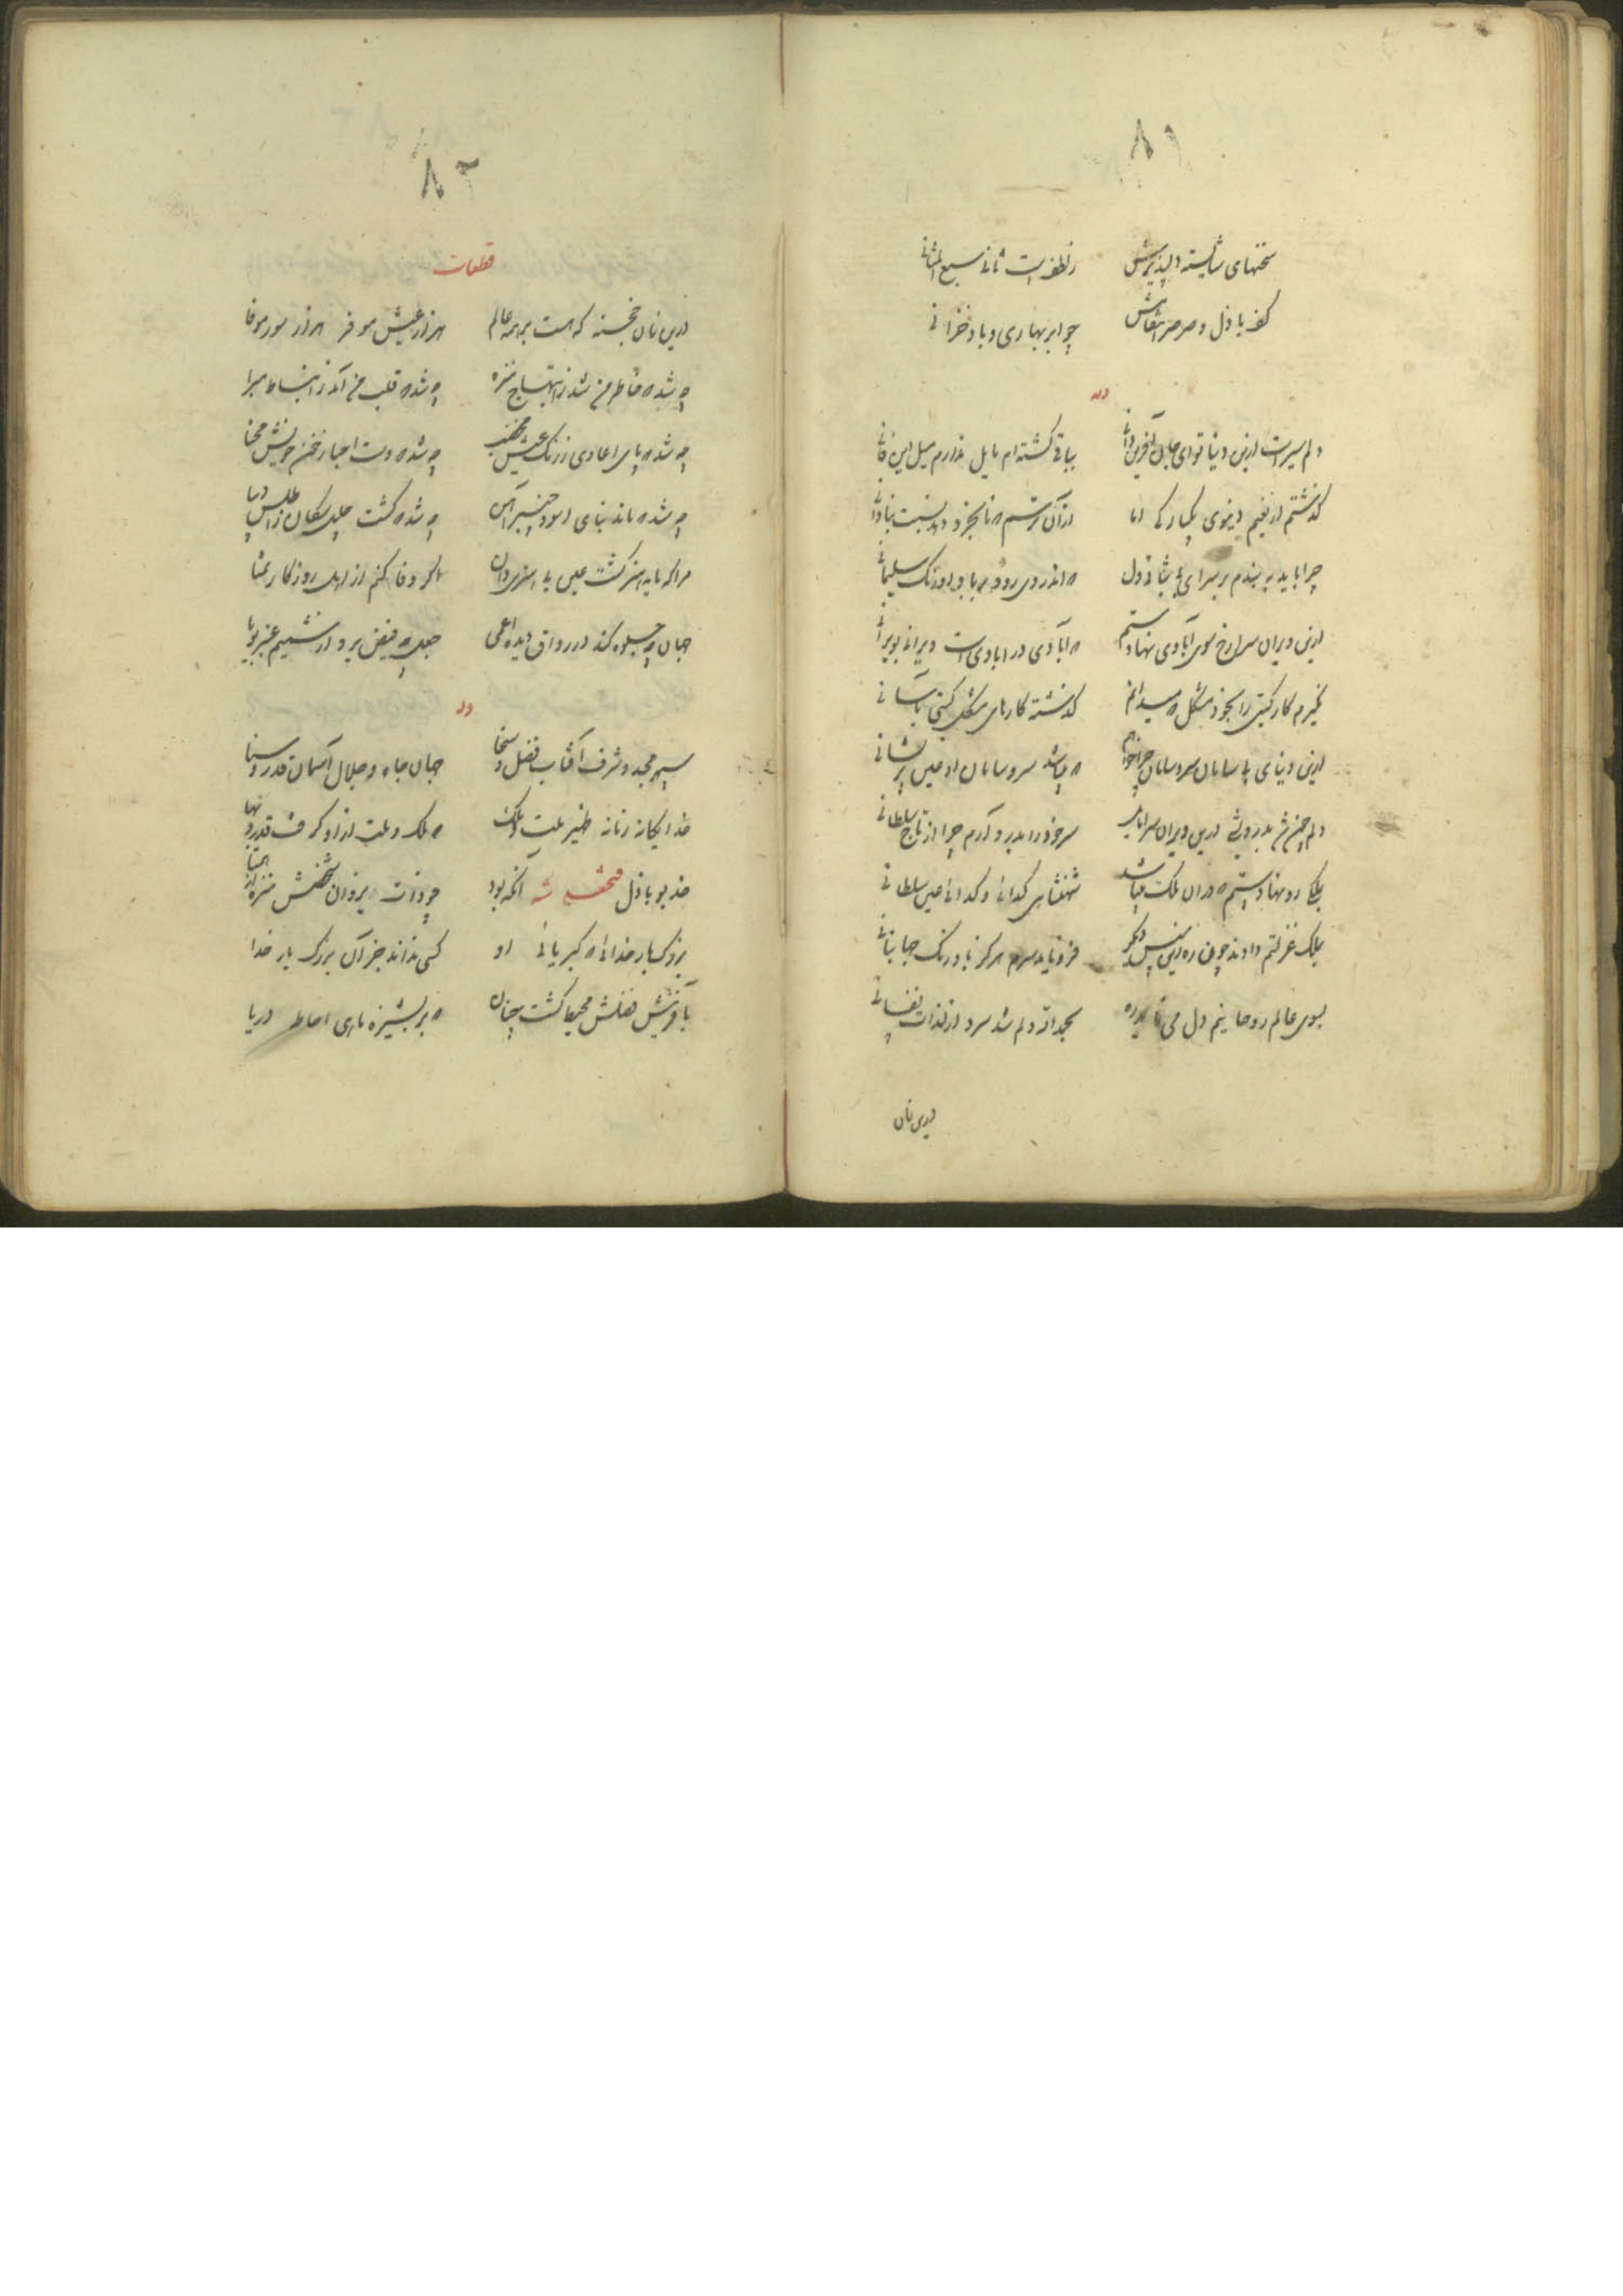 ۸۱
سخنهای شایسته دلپذیرش ز لطفست ثانی سبع المثانی
کف باذل و صرصر انتقامش چو ابر بهاری و باد خزانی
وله
دلم سیر است ازین دنیا تو ای جان آفرین دانی بباقی گشته‌ام مایل ندارم میل این فانی
گذشتم از نعیم دنیوی یکبارگی اما از آن ترسم که نابخرد دهد نسبت بنادانی
چرا باید به بندم بر سرای بی بقا دل که اندر وی رود بر باد اورنگ سلیمانی
ازین ویران سرا رخ سوی آبادی نهادستم که آبادی در آبادی است ویرانی بویرانی
نگیرم کار گیتی را بخود مشکل که میدانم گذشته کارهای مشکل گیتی بآسانی
ازین دنیای بی سامان سر و سامان چرا خواهم که باشد سر و سامان او عین پریشانی
دلم چون شد بدرویشی درین ویران سرا مایل سر خود را بدرد آرم چرا از تاج سلطانی
بملکی رو نهادستم که در آن ملک میباشد شهنشاهی گدائی و گدائی عین سلطانی
بملک عزلتم دادند چون ره زین سپس دیگر فرو ناید سرم هرگز باورنگ جهانبانی
بسوی عالم روحانیم دل می‌نماید ره بحمدالله دلم شد سرد از لذات نفسانی
درین زمان
۸۲
قطعات
درین زمان خجسته که هست بر همه عالم هزار عیش موفر هزار سور موفا
چه شد که خاطر من شد ز ابتهاج منزه چه شد که قلب من آمد ز انبساط مبرا
چه شد که پای اعادی ز رنگ عیش مخضب چه شد که دست احبا ز خون خویش محنا
چه شد که ماند بنای اسود چنبر آهن چه شد که گشت جل سگان ز اطلس و دیبا
مرا که مایه هنر گشت عین بی هنری دان اگر وفا کنم از اهل روزگار تمنا
جهان چه جلوه کند در رواق دیده اعمی جعل چه فیض برد از نسیم عنبر بویا
وله
سپهر مجد و شرف آفتاب فضل و سخا جهان جاه و جلال آسمان قدر و سنا
خدایگانه زمانه ظهیر ملت و ملک که ملک و ملت ازو گرفت قدر و بها
خدیو باذل فتحعلی شه آنکه بود چو ذات یزدان شخصش منزه از همتا
بزرگ بار خدائی که کبریائی او کسی نداند جز آن بزرگ بار خدا
بآفرینش فضلش محیط گشت چنان که بر بشیزه ماهی احاطه دریا